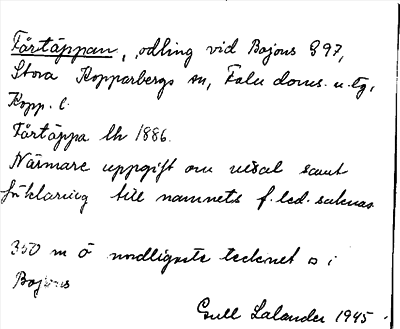 Fårtäppan, odling vid Bojons 897,
Stora Kopparbergs sn, Falu doms. u. tg,
Kopp. l.
Fårtäppa lh 1886.
Närmare uppgift om uttal samt
förklaring till namnets f. led. saknas
350 m Ö nordligaste tecknet o i
Bojons
Gull Lalander 1945.